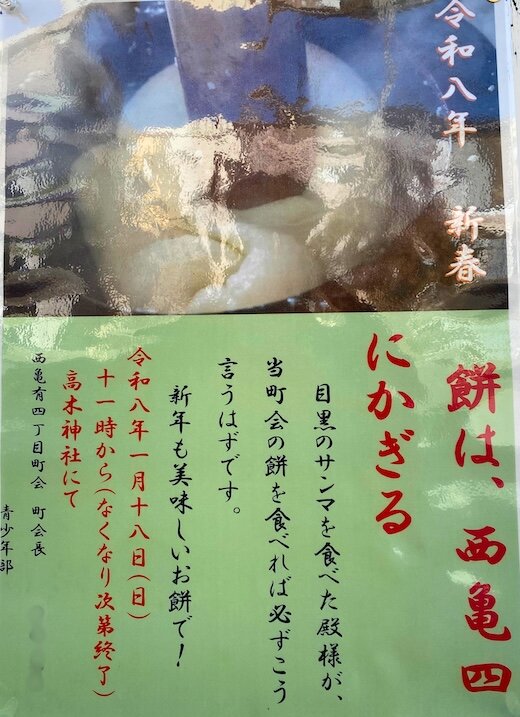 令和八年　新春
餅は、西亀四
にかぎる
目黒のサンマを食べた殿様が、
当町会の餅を食べれば必ずこう
言うはずです。
新年も美味しいお餅で！
令和八年一月十八日（日）
十一時から（なくなり次第終了）
高木神社にて
西亀有四丁目町会　町会長
青少年部